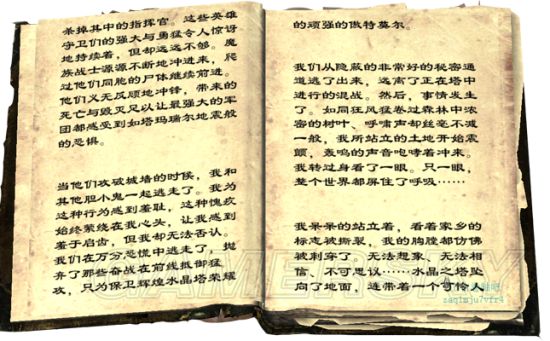 杀掉其中的指挥官。这些英雄
守卫们的强大与勇猛令人惊讶
地持续着，但却远远不够。魔
族战士源源不断地冲进来，爬
过他们同胞的尸体继续前进。
他们义无反顾地冲锋，带来的
死亡与毁灭足以让最强大的军
团都感受到如塔玛瑞尔地震般
的恐惧。
当他们攻破城墙的时候，我和
其他胆小鬼一起逃走了。我为
这种行为感到羞耻，这种愧疚
始终萦绕在我心头，让我感到
羞于启齿，但我却无法否认。
我们在万分恐慌中逃走了，抛
弃了那些奋战在前线抵御猛
攻，只为保卫辉煌水晶塔荣耀
的顽强的傲特莫尔。
我们从隐蔽的非常好的秘密通
道逃了出来，远离了正在塔中
进行的混战。然后，事情发生
了。如同狂风猛卷过森林中浓
密的树叶、呼啸声却丝毫不减
一般，我所站立的土地开始震
颤，轰鸣的声音咆哮着冲来。
我转过身看了一眼。只一眼，
整个世界都屏住了呼吸……
我呆呆的站立着，看着家乡的
标志被撕裂，我的胸膛都仿佛
被刺穿了。无法想象、无法相
信、不可思议……水晶之塔坠
向了地面，连带着一个可怜人
GAMERSKY
zaqtmju7vfr4